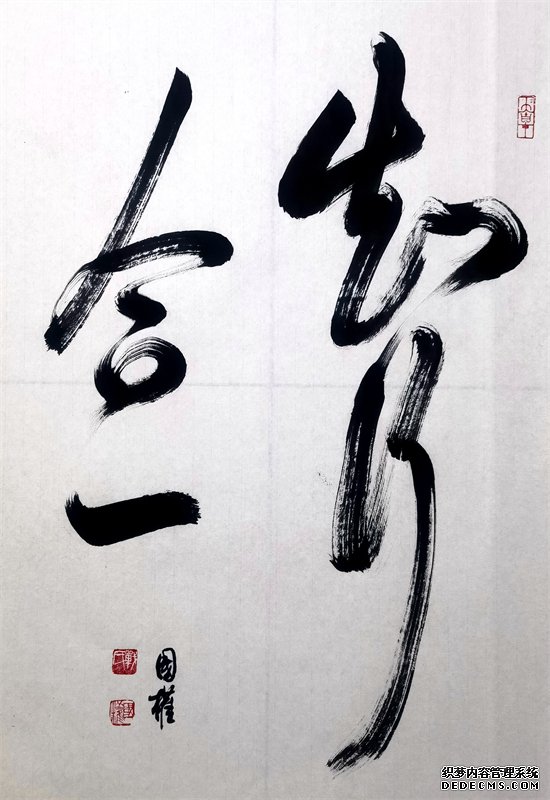 知行
合一
国权
织梦内容管理系统
DEDECMS.COM